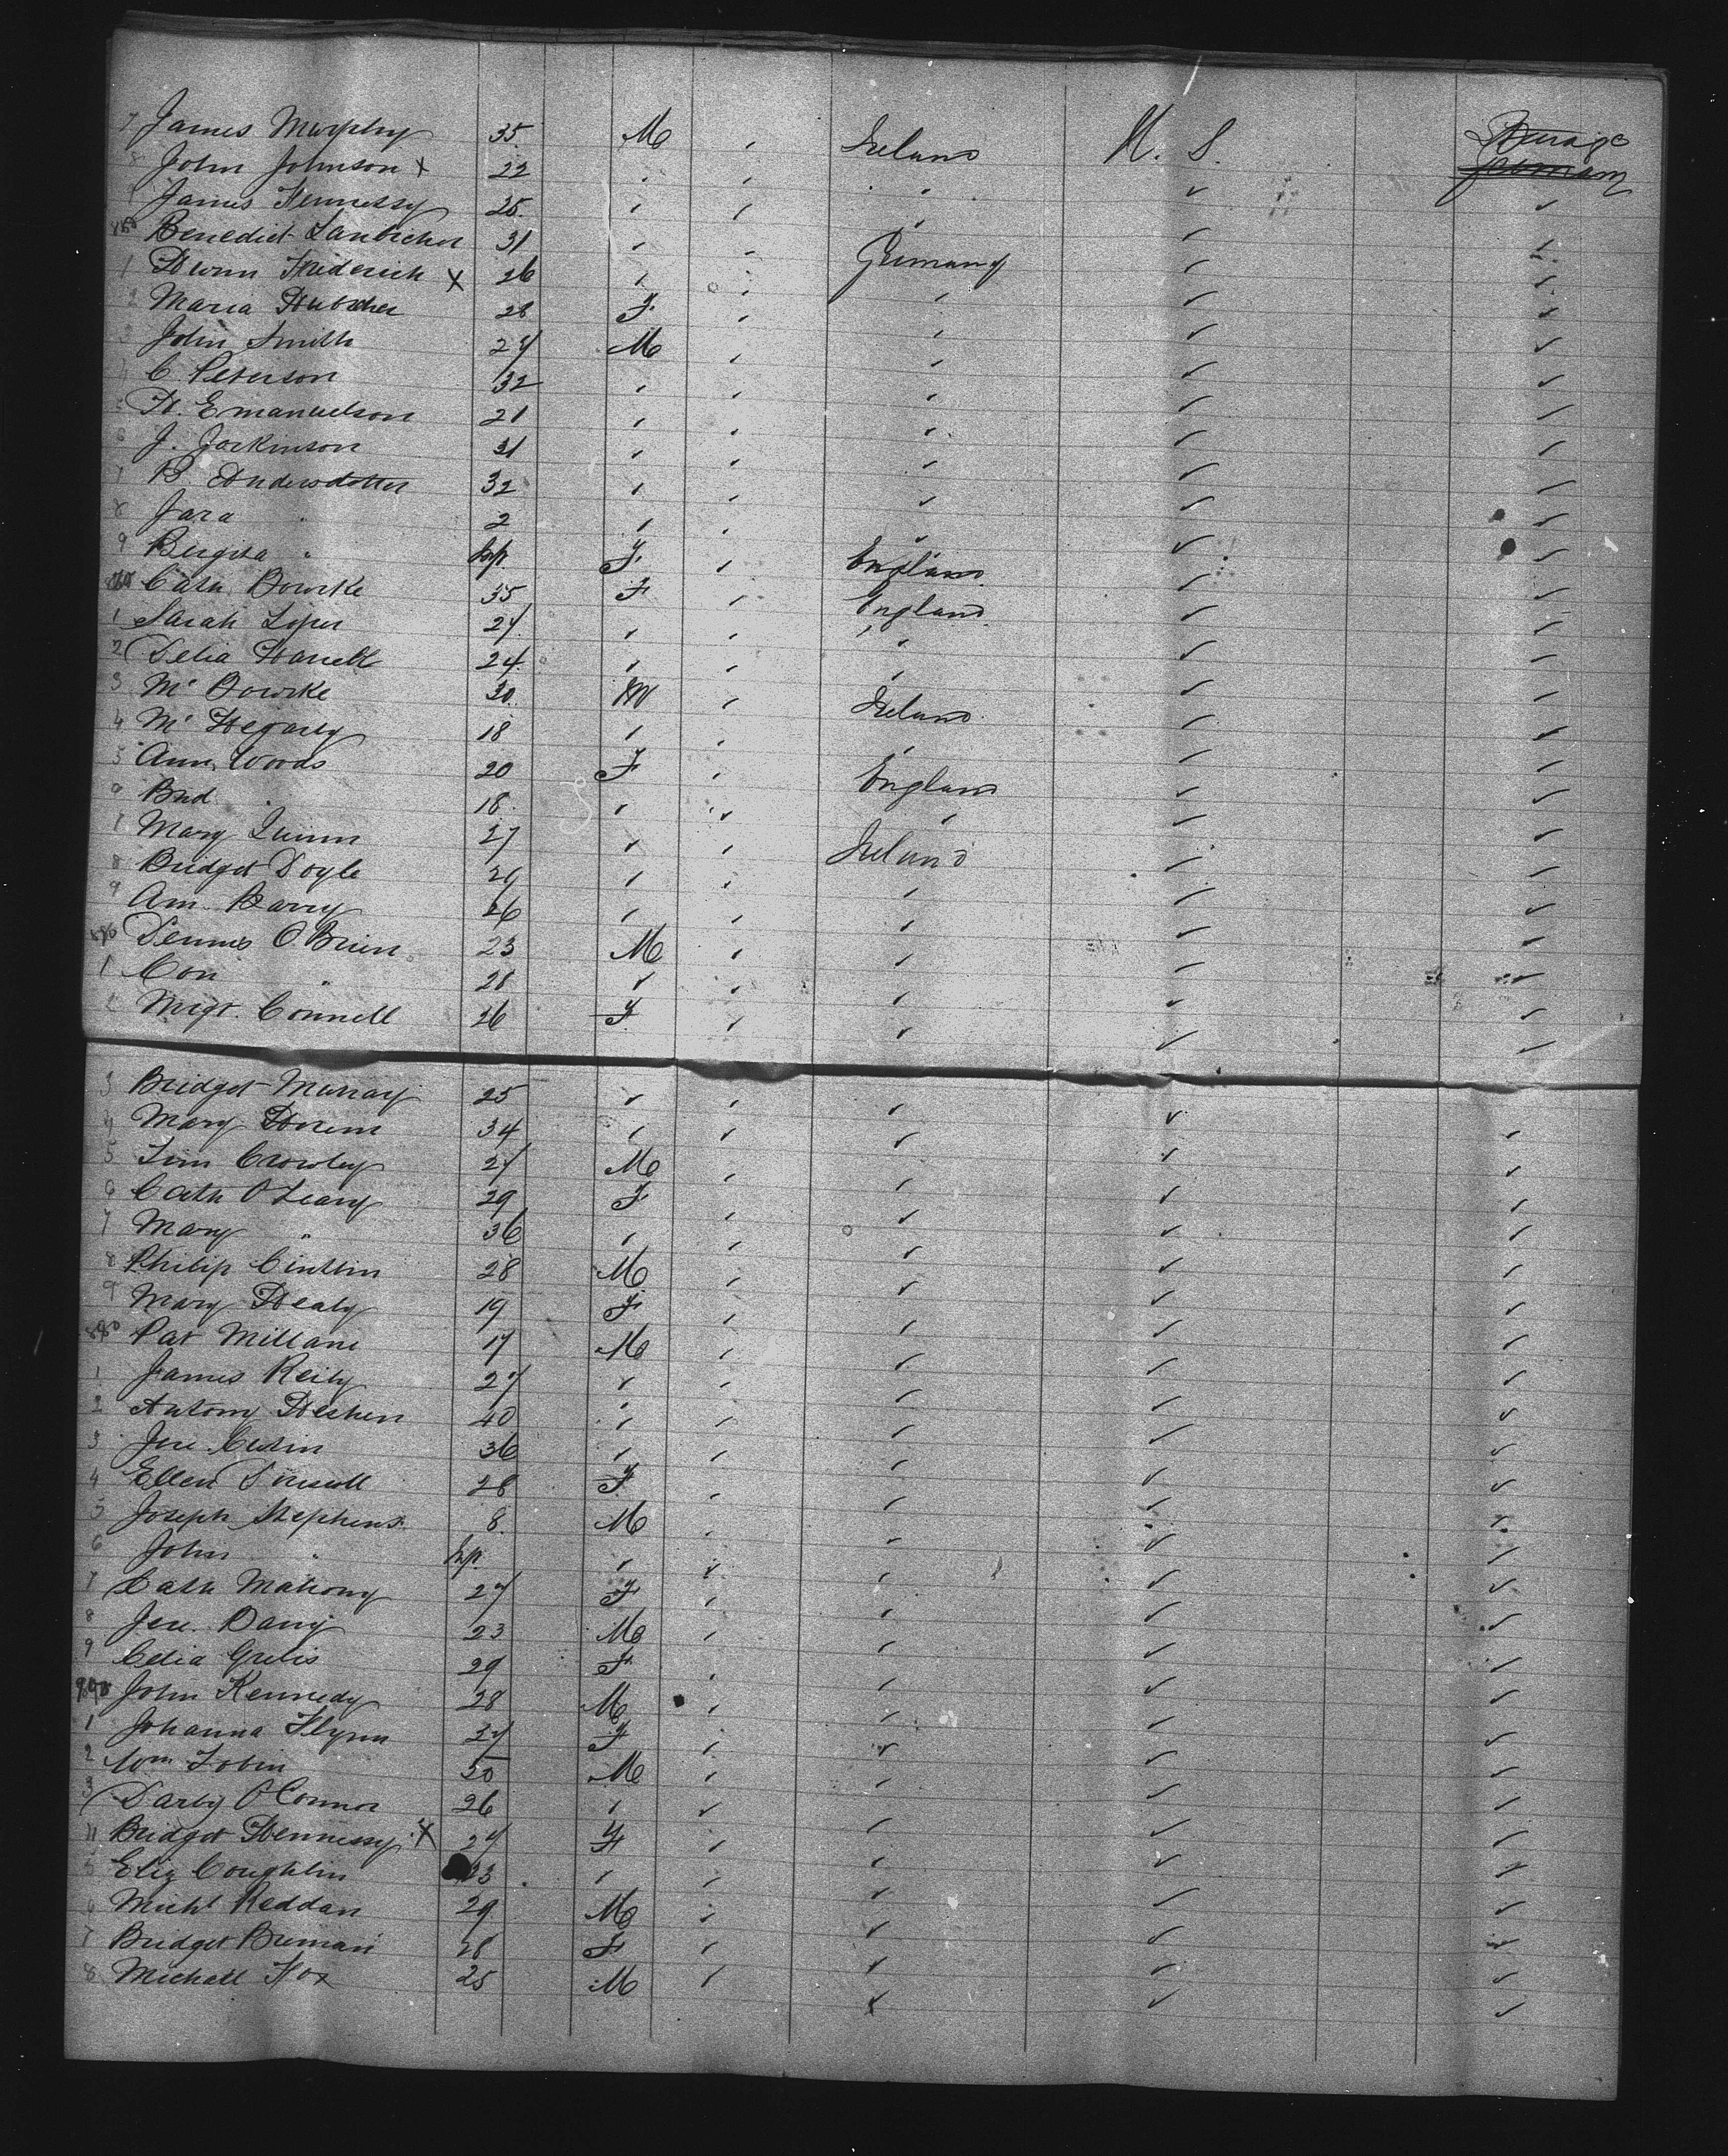 7 James Murphy 35 M Ireland U. S. Steerage
8 John Johnson x 22
9 James Hennessy 25
Benedict 31 Germany
1 Friderich x 26
2 Maria 28 F
3 John Smith 27 M
4 C. Peterson 32
5 H. Emanuelson 21
6 J. Jorkinson 31
7 B. 32
8 Jara " 2
9 Birgita " Inf. F England
Cath Bourke 35 F England
1 Sarah Loper 27
2 Delia 24
3 Ml Bourke 30 M Ireland
4 Ml Hegarty 18
5 Ann Woods 20 F England
Brid " 18
7 Mary Quinn 27 Ireland
8 Bridget Doyle 29
9 Ann Barry 26
Dennis O'Brien 23 M
1 Con " 28
2 Mrgt. Connell 26 F
3 Bridget Murray 25
4 Mary 34
5 Tim Crowley 27 M
6 Cath O'Leary 29 F
7 Mary " 36
8 Philip 28 M
9 Mary Healy 19 F
880 Pat Millane 17 M
1 James Reily 27
2 Antony 40
3 Jere. 36
4 Ellen 28 F
5 Joseph Stephens 8 M
6 John " Inf.
7 Cath Mahony 27 F
8 Jere. 23 M
9 Celia 29 F
John Kennedy 28 M
1 Johanna Flynn 27 F
2 Wm Tobin 50 M
3 Darby O'Connor 26
4 Bridget Hennessy x 27 F
5 Eliz Coughlin 23
6 Michl Reddan 29 M
7 Bridget 28 F
8 Michael Fox 25 M